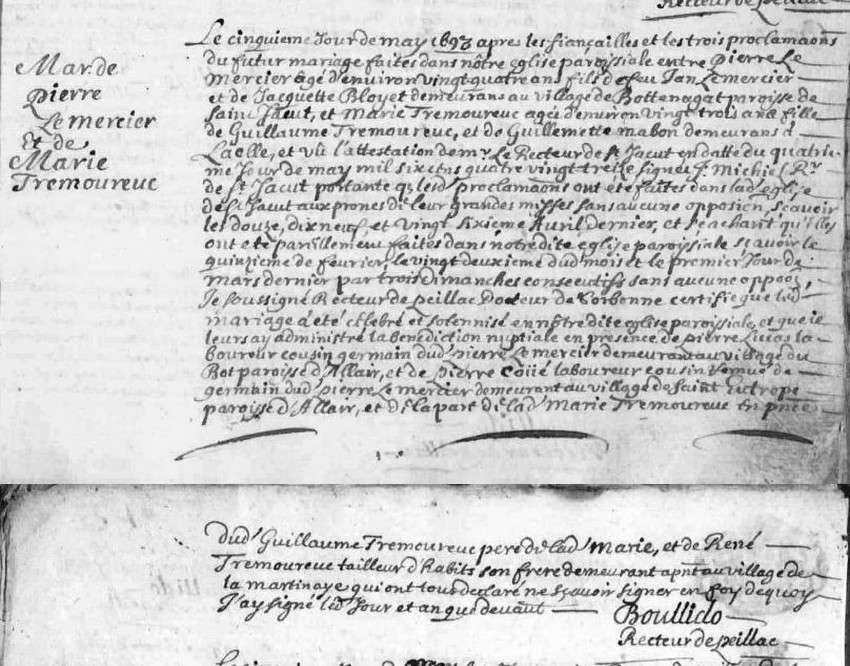 Recteur de peillac
Mar. de
Pierre
Le mercier
Et de
Marie
Tremoureuc
Le cinquieme Jour de may 1693 apres les fiançailles et les trois proclamaons
du futur mariage faites dans notre eglise paroissiale entre Pierre Le
Mercier agé d'environ vingt quatre ans fils de feu Jan Lemercier
et de Jacquette Bloyet demeurans au village de Bottenagat paroisse de
saint Jacut, et Marie Tremoureuc agée d'environ vingt trois ans fille
de Guillaume Tremoureuc, et de Guillemette mabon demeurans à
Laolle, et vû l'attestation de mr. Le Recteur de st Jacut en datte du quatrie-
me Jour de may mil six cens quatre vingt treize signée J. Michiel Rr.
de st Jacut portante q; lesd' proclamaons ont été faites dans lad' eglise
de st Jacut aux prones de leur grandes messes sans aucune opposion, scavoir
les douze, dix neuf, et vingt sixieme Avril dernier, et scachant qu'elles
ont eté pareillement faites dans notre dite eglise paroissiale scavoir le
quinzieme de fevrier, le vingt deuxieme dud' mois et le premier Jour de
mars dernier par trois dimanches consecutifs sans aucune oppoon,
Je soussigné Recteur de peillac docteur de sorbonne certifie que led'
mariage a été celebré et solennisé en nôtre dite eglise paroissiale, et que je
leurs ay administré la benediction nuptiale en presence de pierre Lucas la-
boureur cousin germain dud' pierre Le mercier demeurant au village du
Bot paroisse d'Allair, et de pierre Coüé laboureur cousin remué de
germain dud' pierre Le mercier demeurant au village de saint Eutrope
paroisse d'Allair, et de la part de lad' Marie Tremoureuc en pnce
dud' Guillaume Tremoureuc pere de lad' Marie, et de René
Tremoureuc tailleur d'habits son frere demeurant apnt au village de
la martinaye qui ont tous declaré ne scavoir signer en foy de quoy
J'ay signé led' Jour et an que devant
Boullido
Recteur de peillac